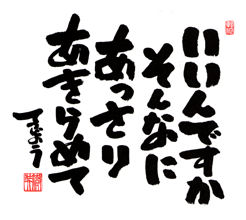 いいんですか
そんなに
あっさり
あきらめて